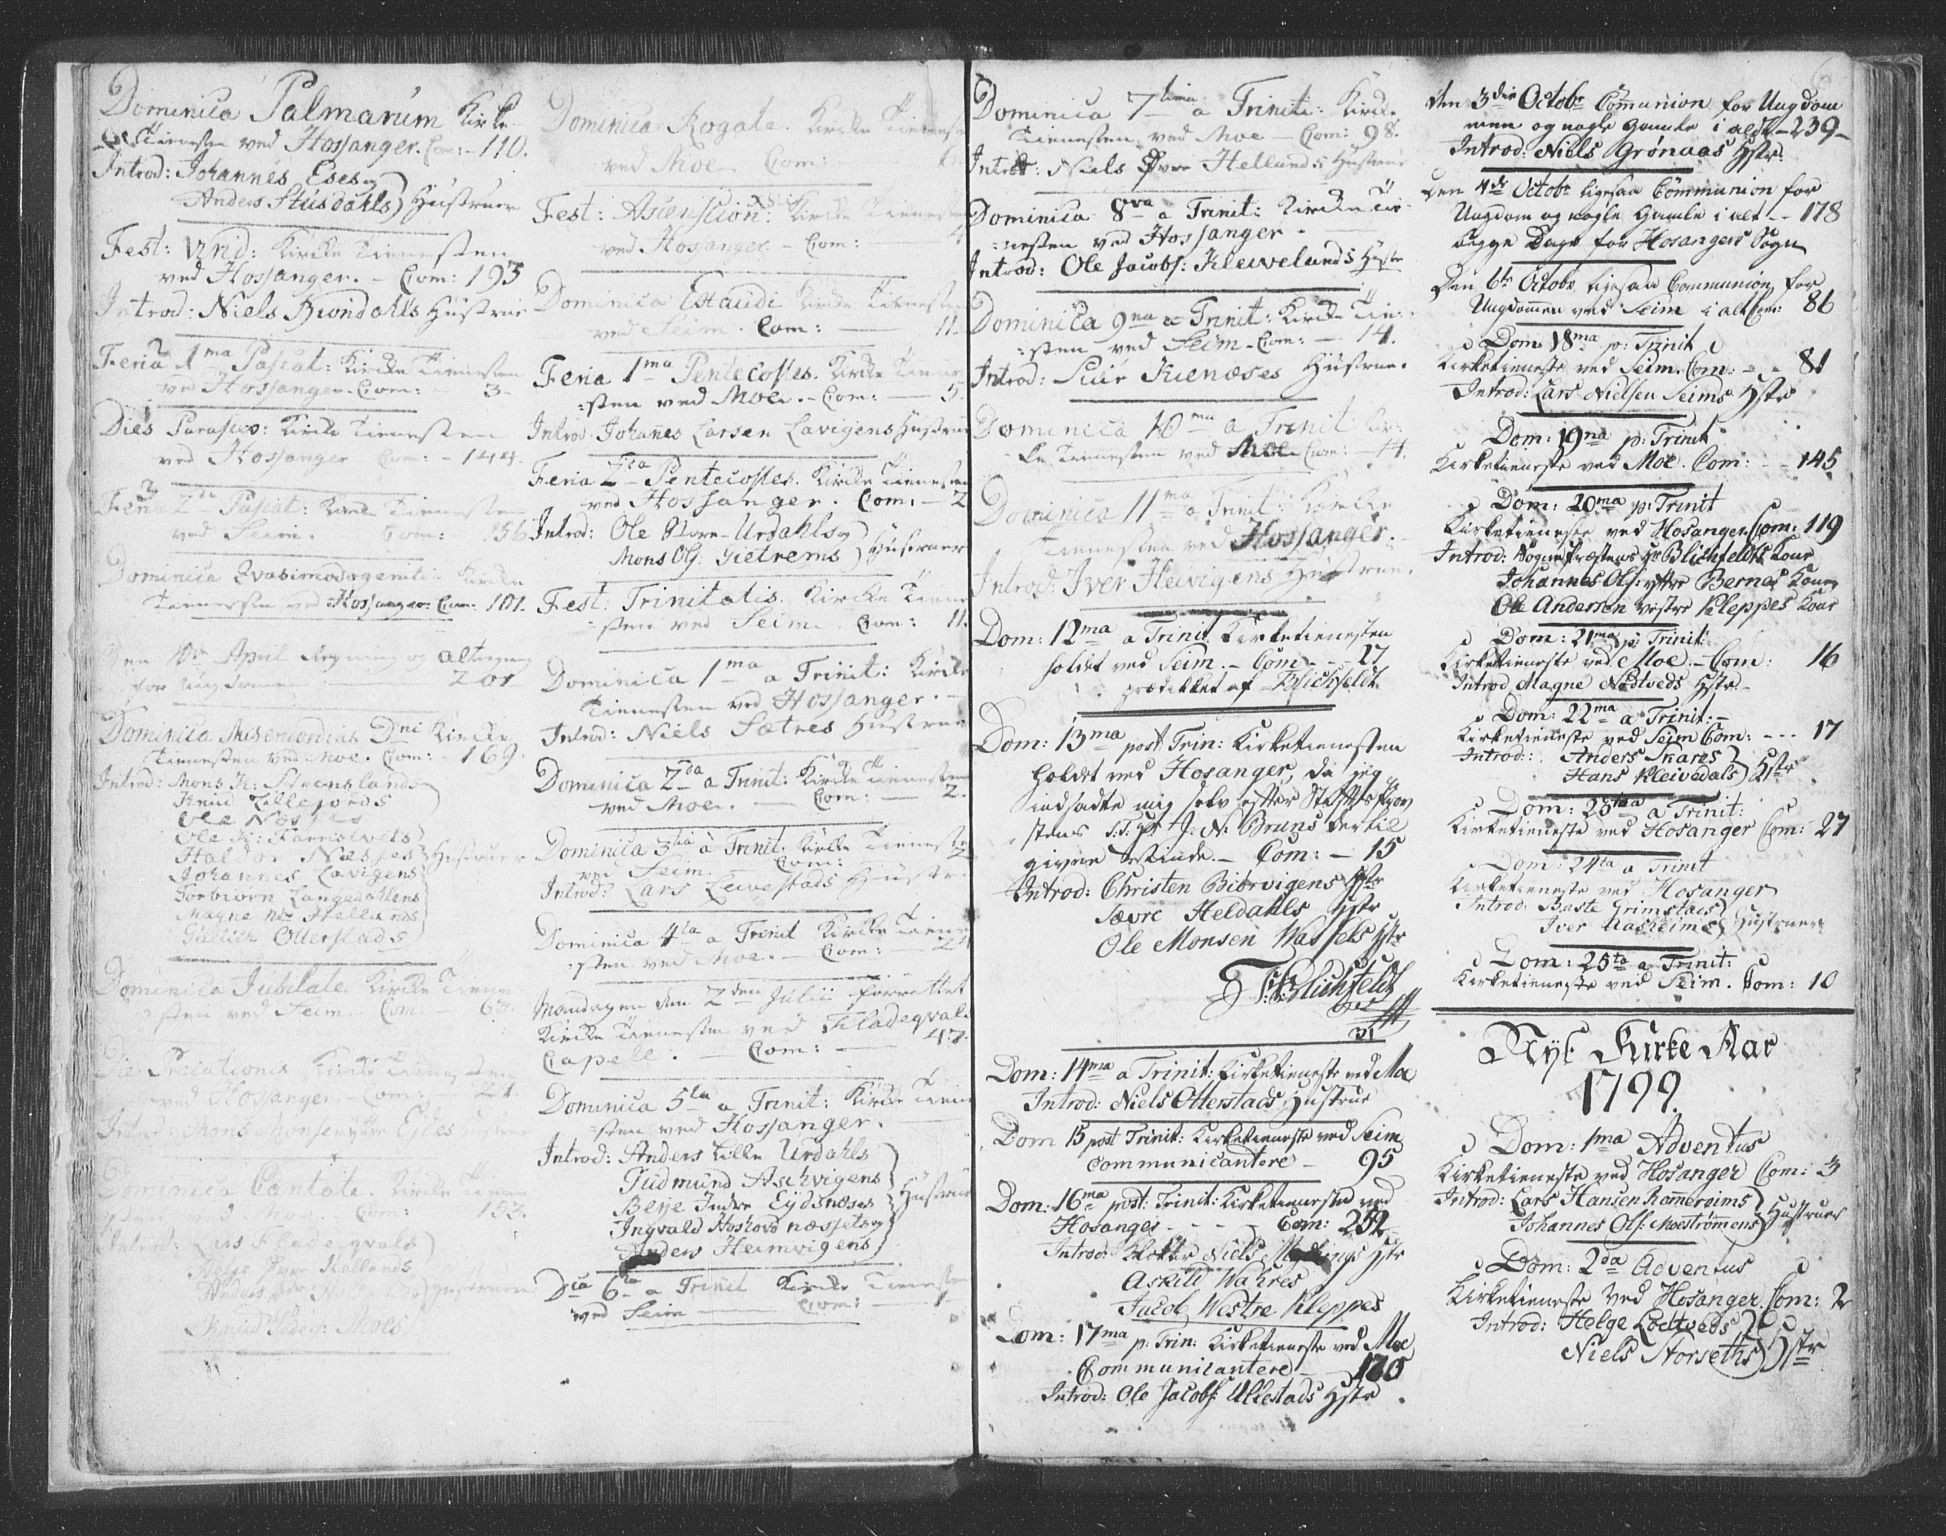 Dominica Palmarum Kirke
Tienesten ved Hossanger. Com: 110.
Introd: Johannes Eses og
Anders Stusdahls Hustruer
Fest: Vird: Kircke Tienesten
ved Hossanger. - Com: 193
Introd: Niels Biondahls Hustrue
Feria 1ma Pascat: Kircke Tienesten
ved Hossanger. Com: 3.
Dies Parasceo: Kircke Tienesten
ved Hossanger Com: - 144.
Feria 2da Pascat: Kircke Tienesten
ved Seim. Com: - 156
Dominica Qvasimodogeniti: Kircke
Tienesten ved Hossanger: Com: 101.
April og altergang
for Ungdommen 201
Dominica Misericordias Dni Kircke
Tienesten ved Moe. Com: 169.
Introd: Mons K: Steenslands
Knud Lillefords
Ole Næsses
Ole K:
Haldor Næsses Hustruer
Johannes Lavigens
Torbiørn Langedahlens
Magne Hellands
Gullich Otterstads
Dominica Jubilate Kircke Tiene
sten ved Seim. - Com: - 63.
Die Precationis Kircke Tienesten
ved Hossanger. - Com: - 21.
Introd: Mons Monsen Eides
Dominica Cantate. Kircke Tiene
sten ved Moe. Com: 153.
Introd: Lars Fladeqvals
Helge Øvre Kollands
Anders Hustruer
Knud Moes
Dominica Rogate. Kircke Tienesten
ved Moe Com:
Fest: Ascension: Kircke Tienesten
ved Hossanger - Com: 4
Dominica Exaudi Kircke Tienesten
ved Seim. Com: 11.
Feria 1ma Pentecostes. Kircke Tiene
sten ved Moe. - Com: - 5.
Introd: Johannes Larsen Lavigens Hustrue
Feria 2da Pentecostes. Kircke Tienesten
ved Hossanger. Com: - 2
Introd: Ole Store Urdahls og
Mons Ols: Tietrems Hustruer
Fest: Trinitatis. Kircke Tiene
sten ved Seim. Com: 11.
Dominica 1ma a Trinit: Kircke
Tienesten ved Hossanger.
Introd: Niels Sætres Hustrue
Dominica 2da a Trinit: Kircke Tienesten
ved Moe. - Com: - 2.
Dominica 3tia a Trinit. Kircke Tieneste
ved Seim. Com: 2
Introd: Lars Hustrue
Dominica 4ta a Trinit Kircke Tiene
sten ved Moe. - Com: - 21
Mandagen den 2den Julii forrettet
Kircke Tienesten ved Fladeqvals
Capell. - Com: - 47.
Dominica 5ta a Trinit: Kircke Tiene
sten ved Hossanger.
Introd: Anders Lille Urdahls
Gudmund Aschvigens
Berje Indre Eydsneses Hustruer
Ingvald
Anders Heimvigens
Dca 6ta a Trinit Kircke Tienesten
ved Seim Com: 1
Dominica 7tima a Trinit: Kircke
Tienesten ved Moe - Com: 98.
Introd: Niels Øvre Hellands Hustrue
Dominica 8va a Trinit: Kircke Tie
nesten ved Hossanger.
Introd: Ole Jacobs: Klevelands Hustr
Dominica 9na a Trinit: Kircke Tie:
sten ved Seim. - Com: - 14.
Introd: Siur Kienæses Hustrue.
Dominica 10ma a Trinit Kir
ke Tienesten ved Moe. Com: - 4.
Dominica 11ma a Trinit: Kircke
Tienesten ved Hossanger.
Introd: Iver Helvigens Hustrue.
Dom: 12ma a Trinit. Kirketienesten
holdet ved Seim. - Com - - 27
prædikket af Blichfeldt.
Dom: 13ma post Trin: Kirketienesten
holdet ved Hosanger, da jeg
indsadte mig selv efter Stiftsprov
stens S.T. Hr J. N. Bruns dertil
givne Minde. - Com: - 15
Introd: Christen Biørvigens Hstr
Siovre Heldahls Hstr
Ole Monsen Wassels Hstr
Blichfeldt
Dom: 14ma a Trinit: Kirketieneste ved Moe
Introd: Niels Otterstads Hustrue
Dom 15 post Trinit: Kirketieneste ved Seim
Communicantere - 95
Dom: 16ma post: Trinit: Kirketieneste ved
Hosanger - - - Com: 252
Introd: Klokker Niels Hstr
Askild Wahres
Jacob Westre Kleppes
Dom: 17ma p: Trin: Kirketieneste ved Moe
Communicantere - 170
Introd: Ole Jacobs: Ullestads Hstr
den 3die Octobr Communion for Ungdom
men og nogle Gamle i alt - 239 -
Introd: Niels Grønaas Hstr.
Den 4de Octobr ligesaa Communion for
Ungdom og nogle Gamle i alt - - 178
begge Dage for Hosangers Sogn
Den 6te Octobr ligesaa Communion for
Ungdommen ved Seim i alt Com: 86
Dom 18ma p: Trinit
Kirketieneste ved Seim. Com: - - 81
Introd: Lars Nielsen Seims Hstr
Dom: 19na p: Trinit
Kirketieneste ved Moe. Com: - - 145
Dom: 20ma p: Trinit
Kirketieneste ved Hosanger Com: 119
Introd: Sognepræstens Hr Blichfeldts Kone
Johannes Ols: ytre Bernes Kone
Ole Andersen Vestre Kleppes Kone
Dom: 21ma p: Trinit:
Kirketieneste ved Moe. - Com: 16
Introd Magne Nødtveds Hstr
Dom: 22ma a Trinit: -
Kirketieneste ved Seim Com: - - - 17
Introd: Anders Skares
Hans Kleivedals Hstr
Dom: 23tia a Trinit:
Kirketieneste ved Hosanger Com: 27
Dom: 24ta a Trinit
Kirketieneste ved Hosanger
Introd: Baste Grimstads
Iver Aasheims Hustruer
Dom: 25ta a Trinit:
Kirketieneste ved Seim. Com: 10
Nyt Kirke Aar
1799.
Dom: 1ma Adventus
Kirketieneste ved Hosanger Com: 3
Introd: Lars Hansen Romereims
Johannes Ols: Moestrømens Hustruer
Dom: 2da Adventus
Kirketieneste ved Hosanger. Com: 2
Introd: Helge Loetveds
Niels Norseths Hstr